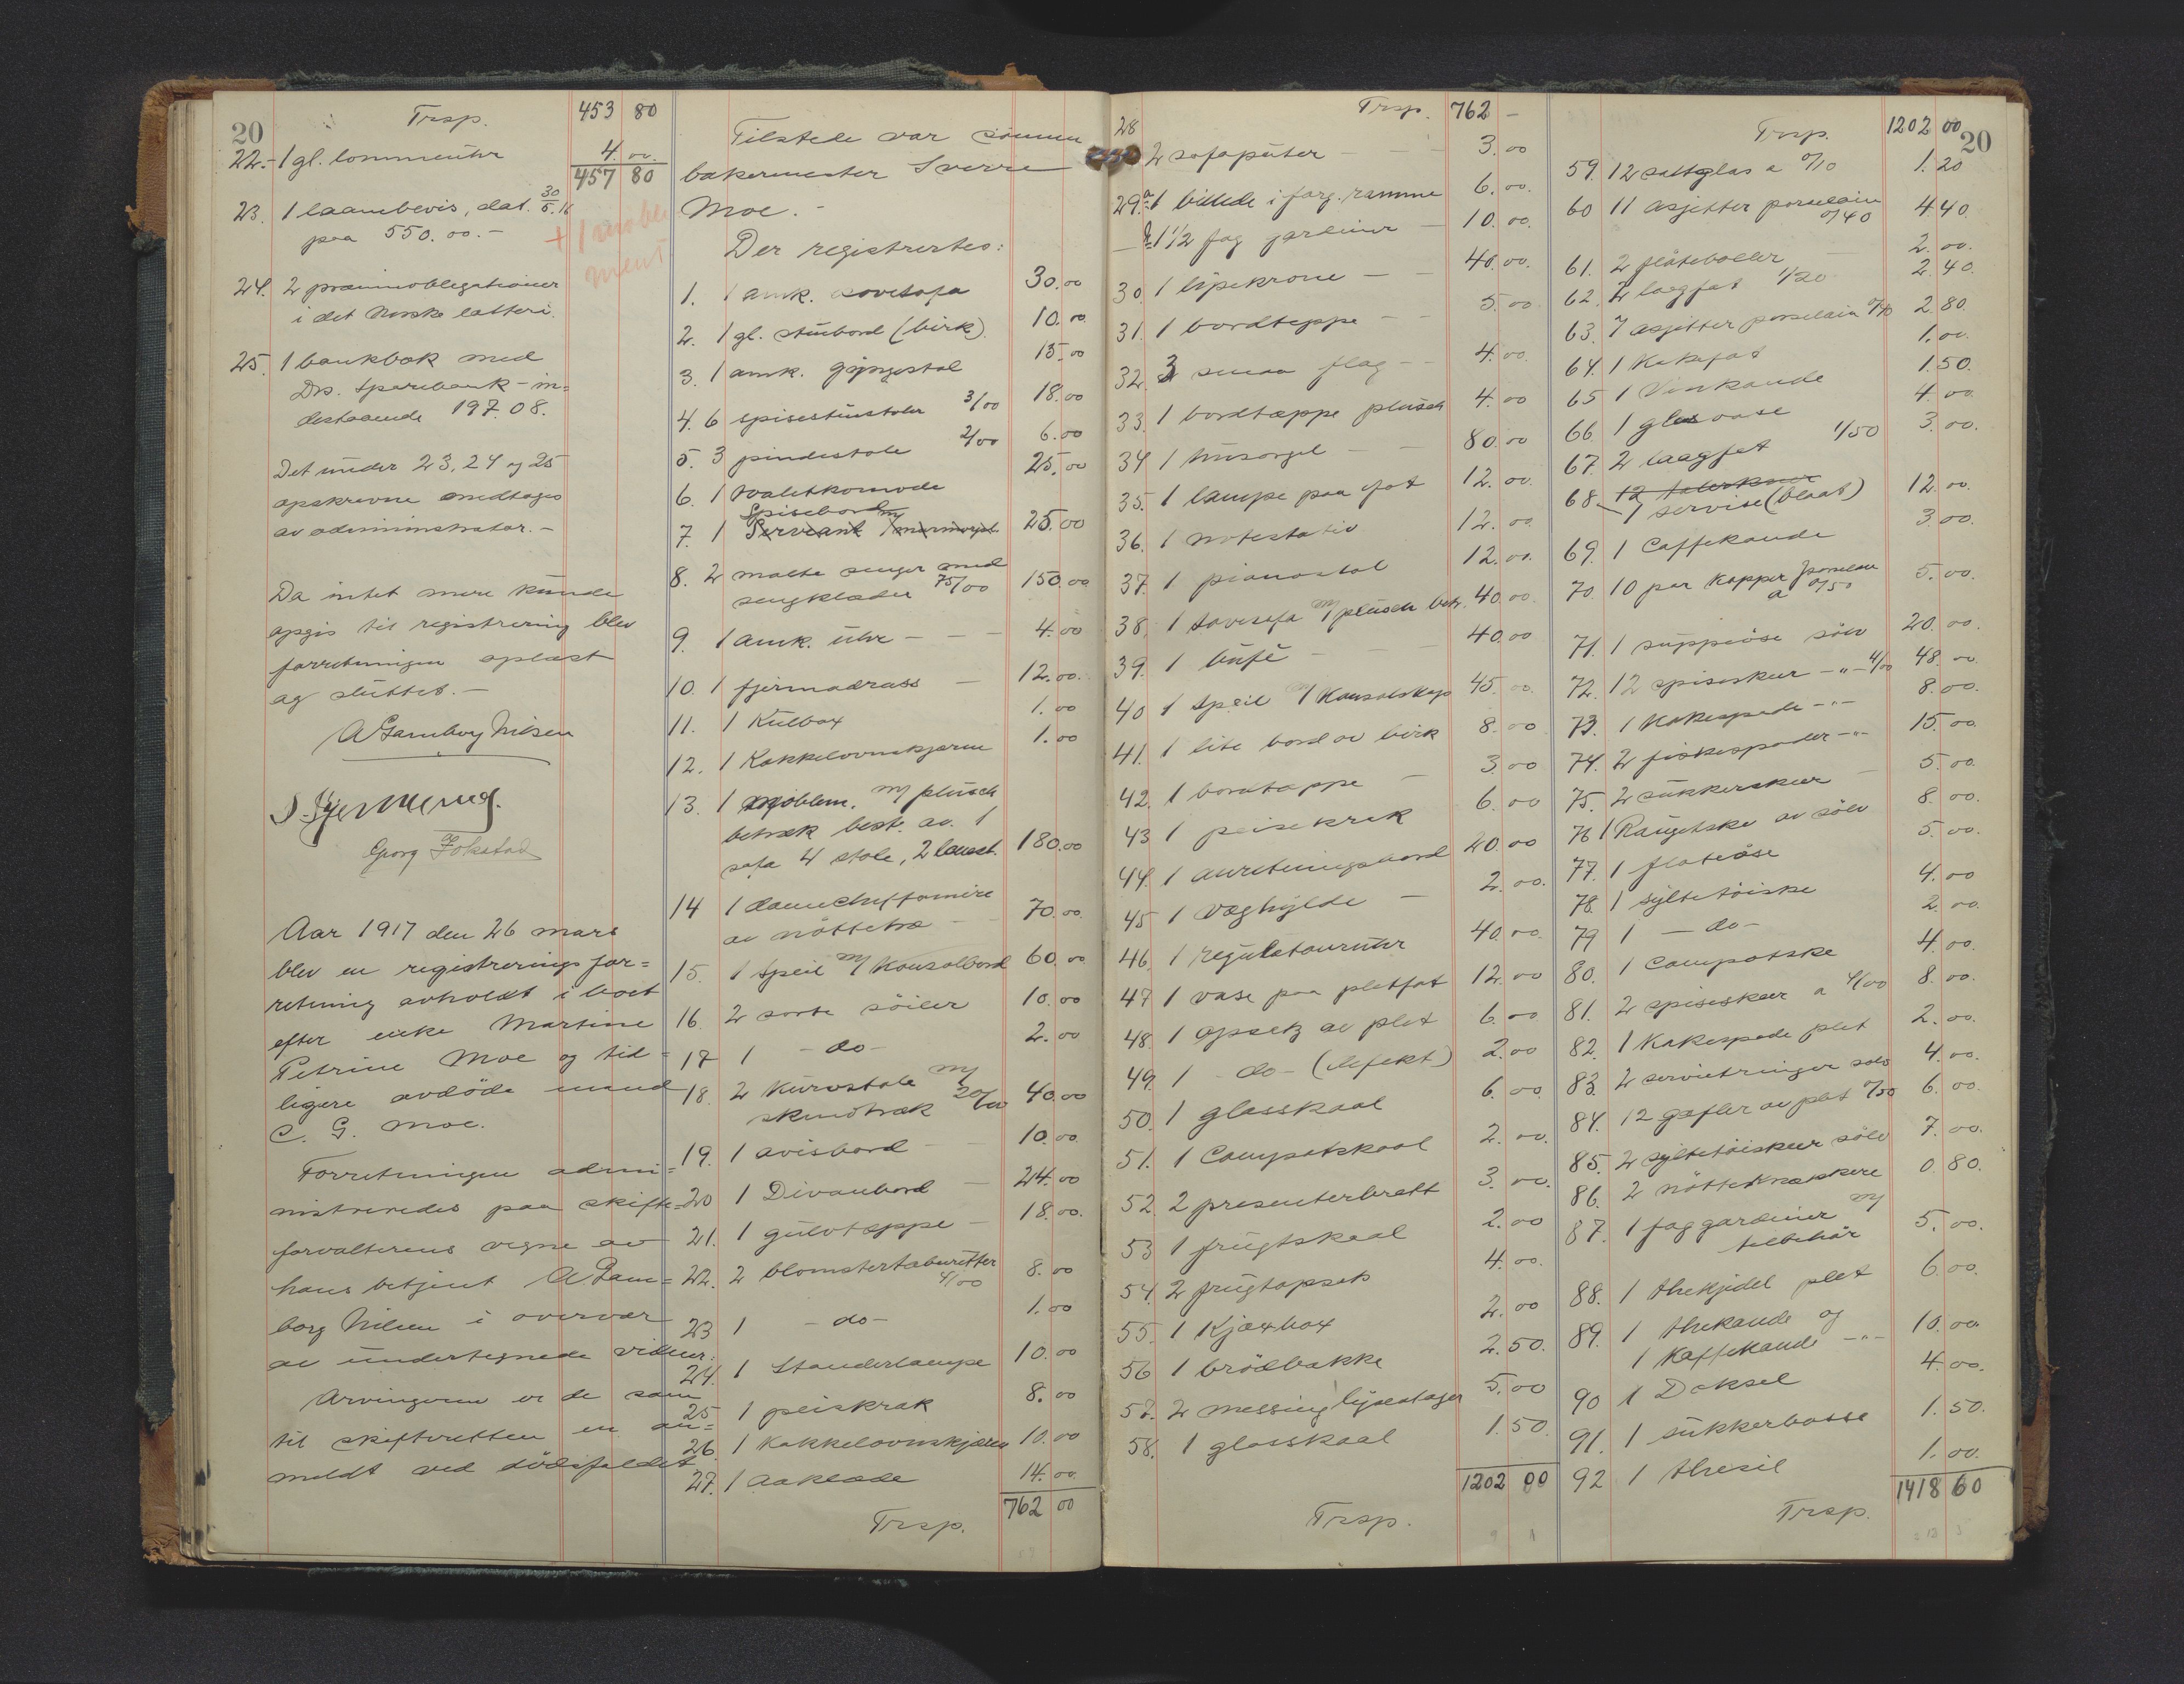 20
Trsp. 453 80
22.- 1 gl. lommeuhr 4. 00.
457 80
23. 1 laanebevis, dat. 30/5.16
paa 550.00.-
24. 2 præmieobligationer
i det Norske lotteri.
25. 1 bankbok med
Drs. Sparebank - in=
destaaende 197.08.
Det under 23, 24 og 25
opskrevne medtages
av administrator.-
Da intet mere kunde
opgis til registrering blev
forretningen oplæst
og sluttet.-
A Gamborg Nilsen
Georg Fokstad
Aar 1917 den 26 mars
blev en registreringsfor=
retning avholdt i boet
efter enke Martine
Petrine Moe og tid=
ligere avdöde mand
C. G. Moe.
Forretningen admi=
nistreredes paa skifte=
forvalterens vegne av
hans betjent A Gam=
borg Nilsen i overvær
av undertegnede vidner:
Arvingerne er de som
til skifteretten er an=
meldt ved dödsfaldet
Tilstede var
bakermester Sverre
Moe.-
Der registrertes:
1. 1 amk. sovesofa 30.00
2. 1 gl. stuebord (birk) 10.00
3. 1 amk. gyngestol 15.00
4. 6 spisestuestoler 3/00 18.00
5. 3 pindestole 2/00 6.00
6. 1 toaletkomode 25.00
7. 1 Spisebord
Servant m/ marmorpl. 25.00
8. 2 malte senger med
sengklæder 75/00 150.00
9. 1 amk. uhr - - - 4.00
10. 1 fjermadrass - 12.00.
11. 1 Kulbox 1.00
12. 1 Kakkelovnskjærm 1.00
13. 1 möblem. m/ plüsch
betræk best. av. 1
sofa 4 stole, 2 lænest. 180.00
14 1 damechiffoniere
av nöttetræ - 70.00.
15. 1 speil m/ Konsolbord 60.00
16. 2 sorte söiler 10.00
17 1 - do - 2.00
18. 2 Kurvstole m/
skindtræk 20/00 40.00
19. 1 avisbord - - 10.00.
20 1 Divanbord - 24.00
21. 1 gulvteppe - 18.00.
22. 2 blomstertaburetter
4/00 8.00
23 1 - do - 1.00
24. 1 Standerlampe 10.00
25 1 peiskrak 8.00
26. 1 Kakkelovnskjærm 10.00
27. 1 aaklæde 14.00.
Trsp. 762 00
Trsp. 762 -
28 2 sofaputer - - - 3.00
29. a 1 billede i forg. ramme 6.00.
- b 1 1/2 fag gardiner - 10.00.
30. 1 lysekrone - - 40.00.
31. 1 bordteppe - - 5.00
32. 3 smaa flag - - 4.00.
33. 1 bordtæppe plüsch 4.00
34 1 husorgel - - 80.00
35. 1 lampe paa fot 12.00.
36. 1 notestativ 12.00
37. 1 pianostol 12.00.
38. 1 sovesofa m/ plüsch betr. 40.00.
39. 1 büfè - - - 40.00
40 1 speil m/ Konsolskap 45.00.
41. 1 lite bord av birk 8.00
42. 1 bordtæppe - 3.00
43 1 peisekrak 6.00
44. 1 anretningsbord 20.00
45 1 væghylde - 2.00.
46. 1 regulatouruhr 40.00.
47 1 vase paa pletfot 12.00
48. 1 opsats av plet 6.00
49. 1 - do - (defekt) 2.00
50. 1 glasskaal 6.00
51. 1 Compotskaal 2.00.
52. 2 presenterbrett 3.00.
53 1 frugtskaal 2.00
54. 2 frugtopsats 4.00.
55. 1 Kjæxbox 2.00
56 1 brödbakke 2.50.
57. 2 messing lysestager 5.00
58. 1 glasskaal 1.50.
1202 00
Trsp.
Trsp. 1202 00
20
59. 12 saltglas a 0/10 1.20
60 11 asjetter porselain
0/40 4 40.
61. 2 flöteboller - 2.00.
62. 2 laagfat 1/20 2.40.
63. 7 asjetter porselain 0/40 2 80.
64. 1 Kakefat 1.00.
65 1 Vinkande 1 50.
66. 1 glasvase 4.00
67. 2 laagfat 1/50 3.00.
68. 12 talerkener
1 servise (blaat) 12.00.
69. 1 Caffekande 3.00.
70. 10 par kopper porselain
a 0/50 5.00.
71. 1 suppeöse sölv 20.00.
72. 12 spiseskeer -"- 4/00 48.00.
73. 1 Kakespade -"- 8.00.
74. 2 fiskespader -"- 15.00
75. 2 sukkerskeer - 5.00.
76 1 Raugetske av sölv 8.00.
77. 1 flöteöse 5.00.
78. 1 syltetöiske 4.00
79 1 - do - 2.00.
80. 1 Compotske 4.00.
81. 2 spiseskeer a 4/00 8.00.
82. 1 Kakespade plet 2.00.
83. 2 servietringer sölv 4.00.
84. 12 gafler av plet 0/50 6.00.
85. 2 syltetöiskeer sölv 7.00.
86. 2 nötteknækkere 0.80.
87. 1 fag gardiner m/
tilbehör 5.00.
88. 1 thekjedel plet 6.00.
89. 1 thekande og
1 Kaffekande -"- 10.00
90 1 Döksel 4.00.
91. 1 sukkerbösse 1.50.
92 1 thesil 1.00.
1418 60
Trsp.